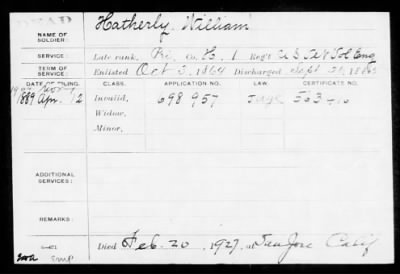 DEAD
NAME OF SOLDIER: Hatherly, William
SERVICE: Late rank, Pri, Co. H, 1 Reg't U S Vet Vol Eng
TERM OF SERVICE: Enlisted Oct 3, 1864 Discharged Sept 26, 1865
DATE OF FILING. CLASS. APPLICATION NO. LAW. CERTIFICATE NO.
1889 Apr. 12 Invalid, 698 957
Widow,
Minor,
ADDITIONAL SERVICES:
REMARKS:
Died Feb. 20, 1927, at San Jose Calif